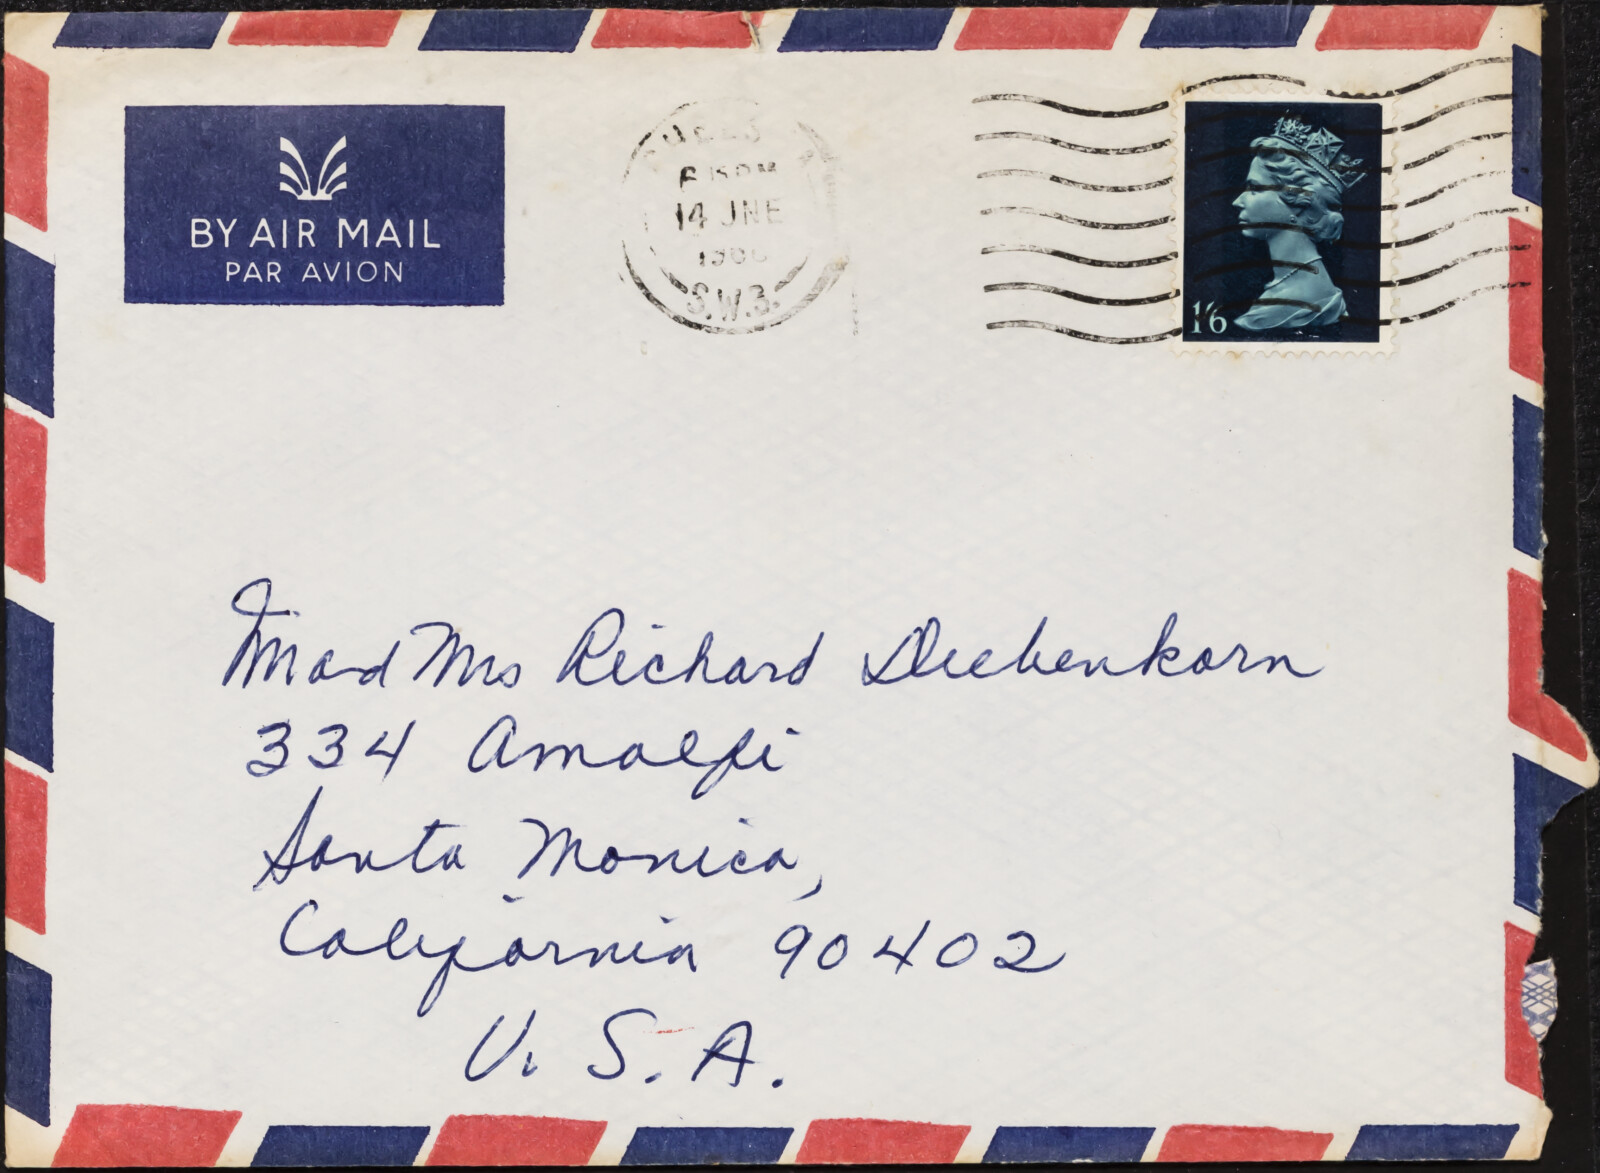 BY AIR MAIL
PAR AVION
14 JNE
S.W.3.
1/6
M and Mrs Richard Diebenkorn
334 Amalfi
Santa Monica,
California 90402
U. S. A.